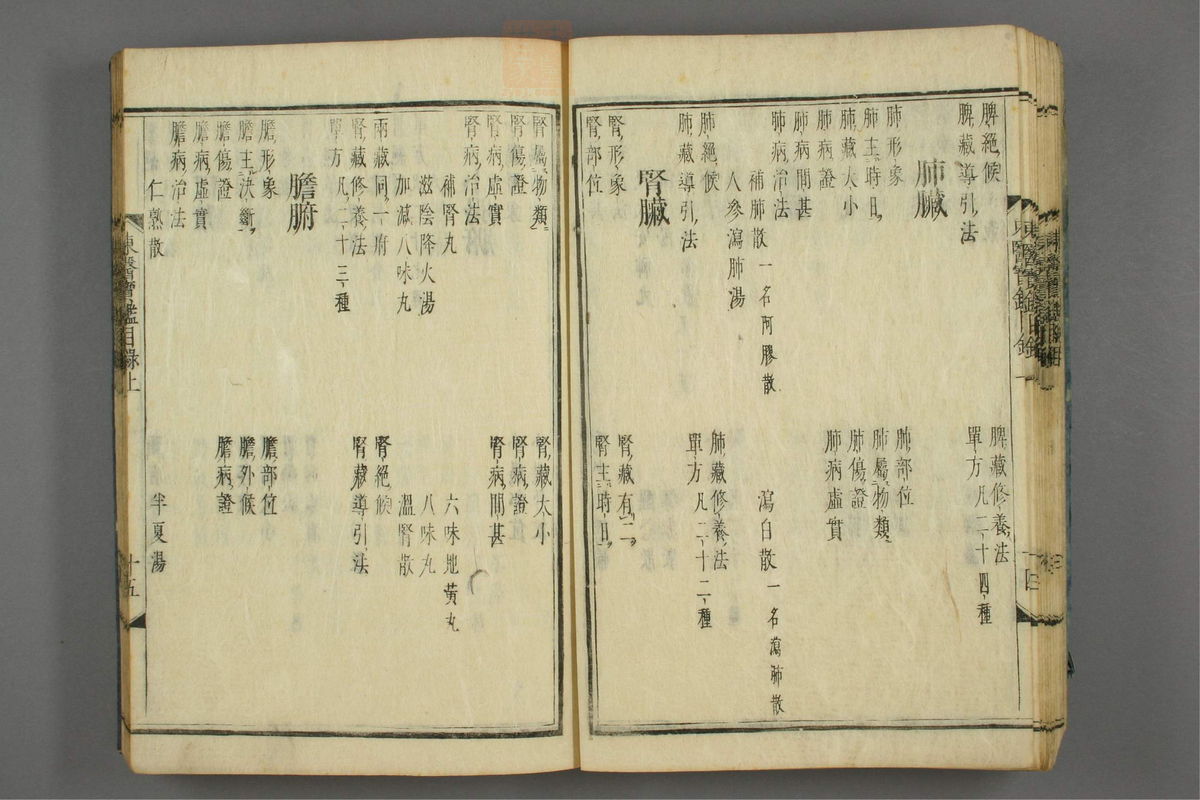 脾絕候
脾藏修養法
脾藏導引法
單方凡二十四種
肺臟
肺形象
肺部位
肺主時日
肺屬物類
肺藏大小
肺傷證
肺病證
肺病虛實
肺病間甚
肺病治法
補肺散一名阿膠散
瀉白散一名瀉肺散
人參瀉肺湯
肺絕候
肺藏修養法
肺藏導引法
單方凡二十二種
腎臟
腎形象
腎藏有二
腎部位
腎主時日
腎屬物類
腎藏大小
腎傷證
腎病證
腎病虛實
腎病間甚
腎病治法
補腎丸
六味地黄丸
滋陰降火湯
八味丸
加減八味丸
溫腎散
兩藏同一府
腎絕候
腎藏修養法
腎藏導引法
單方凡二十三種
膽腑
膽形象
膽部位
膽主決斷
膽外候
膽傷證
膽病證
膽病虛實
膽病治法
仁熟散
半夏湯
東醫寶鑑目錄上
十五